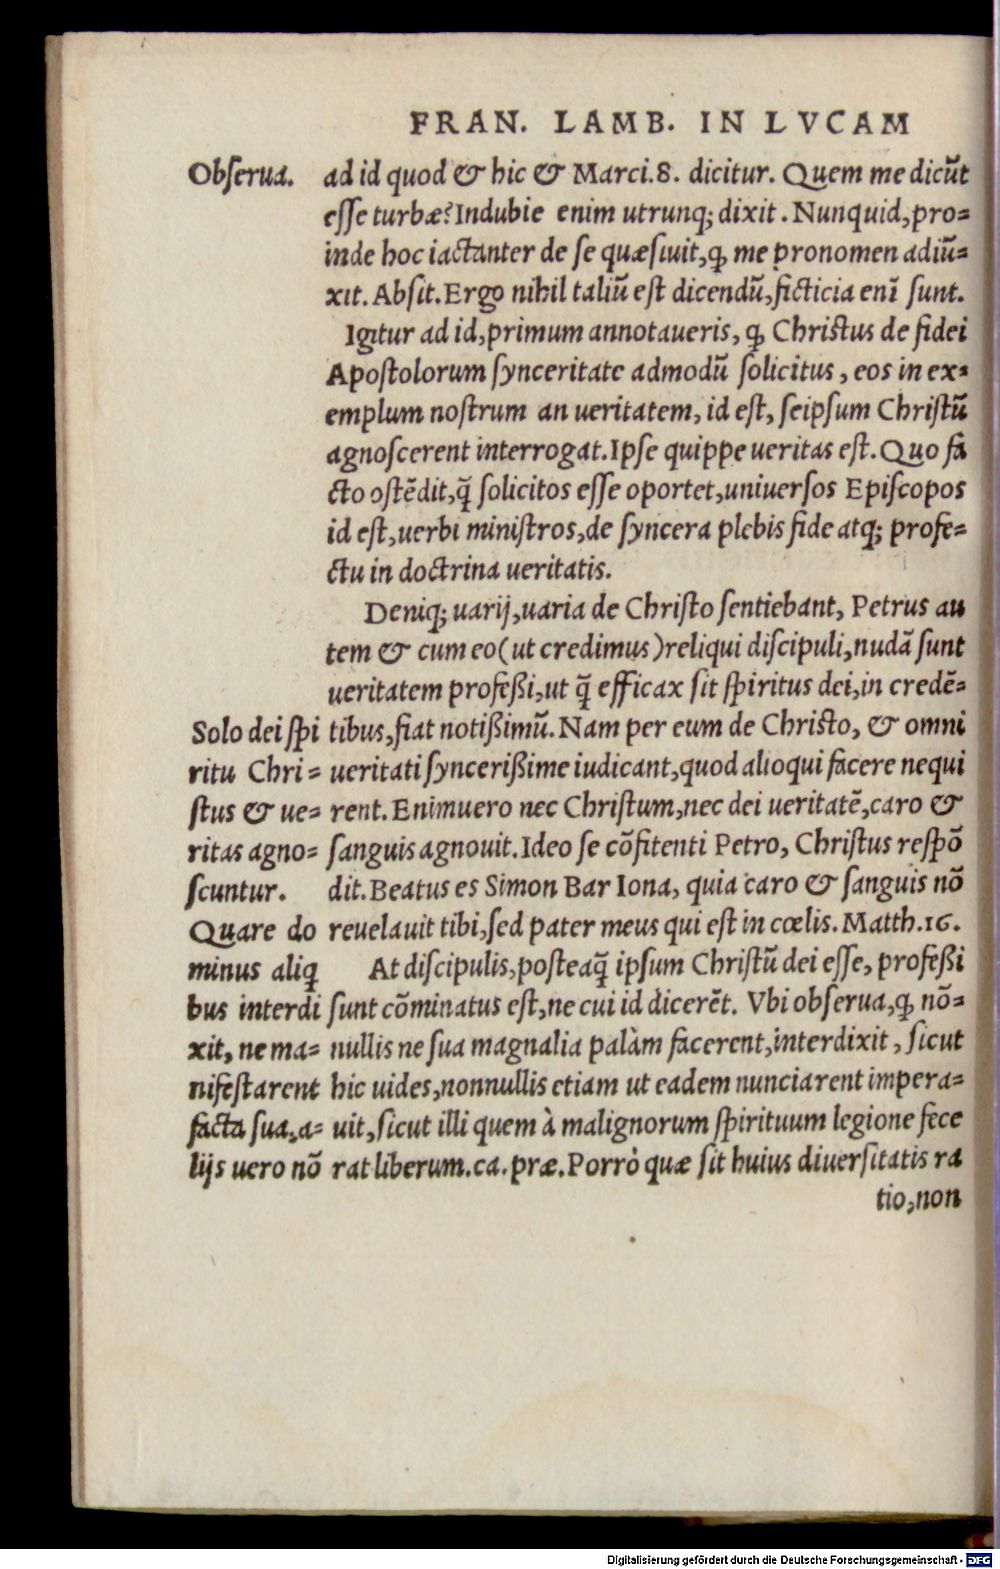 FRAN. LAMB. IN LVCAM
Obſerua.
ad id quod & hic & Marci.8. dicitur. Quem me dicūt
eſſe turbæ? Indubie enim utrunq; dixit. Nunquid, pro=
inde hoc iactanter de ſe quæſiuit, ꝙ me pronomen adiū=
xit. Abſit. Ergo nihil taliū eſt dicendū, ficticia enī ſunt.
Igitur ad id, primum annotaueris, ꝙ Chriſtus de fidei
Apoſtolorum ſynceritate admodū ſolicitus, eos in ex=
emplum noſtrum an ueritatem, id eſt, ſeipſum Chriſtū
agnoſcerent interrogat. Ipſe quippe ueritas eſt. Quo fa
cto oſtēdit, q̄ ſolicitos eſſe oportet, uniuerſos Epiſcopos
id eſt, uerbi miniſtros, de ſyncera plebis fide atq; profe=
ctu in doctrina ueritatis.
Deniq; uarij, uaria de Chriſto ſentiebant, Petrus au
tem & cum eo (ut credimus) reliqui diſcipuli, nudā ſunt
ueritatem profeßi, ut q̄ efficax ſit ſpiritus dei, in credē=
tibus, fiat notißimū. Nam per eum de Chriſto, & omni
ueritati ſyncerißime iudicant, quod alioqui facere nequi
rent. Enimuero nec Chriſtum, nec dei ueritatē, caro &
ſanguis agnouit. Ideo ſe cōfitenti Petro, Chriſtus reſpō
dit. Beatus es Simon Bar Iona, quia caro & ſanguis nō
reuelauit tibi, ſed pater meus qui eſt in cœlis. Matth.16.
At diſcipulis, poſteaq̄ ipſum Chriſtū dei eſſe, profeßi
ſunt cōminatus eſt, ne cui id dicerēt. Vbi obſerua, ꝙ nō=
nullis ne ſua magnalia palàm facerent, interdixit, ſicut
hic uides, nonnullis etiam ut eadem nunciarent impera=
uit, ſicut illi quem à malignorum ſpirituum legione fece
rat liberum. ca. præ. Porrò quæ ſit huius diuerſitatis ra
tio, non
Solo dei ſpi
ritu Chri=
ſtus & ue=
ritas agno=
ſcuntur.
Quare do
minus aliq
bus interdi
xit, ne ma=
nifeſtarent
facta ſua, a=
lijs uero nō
Digitalisierung gefördert durch die Deutsche Forschungsgemeinschaft - DFG